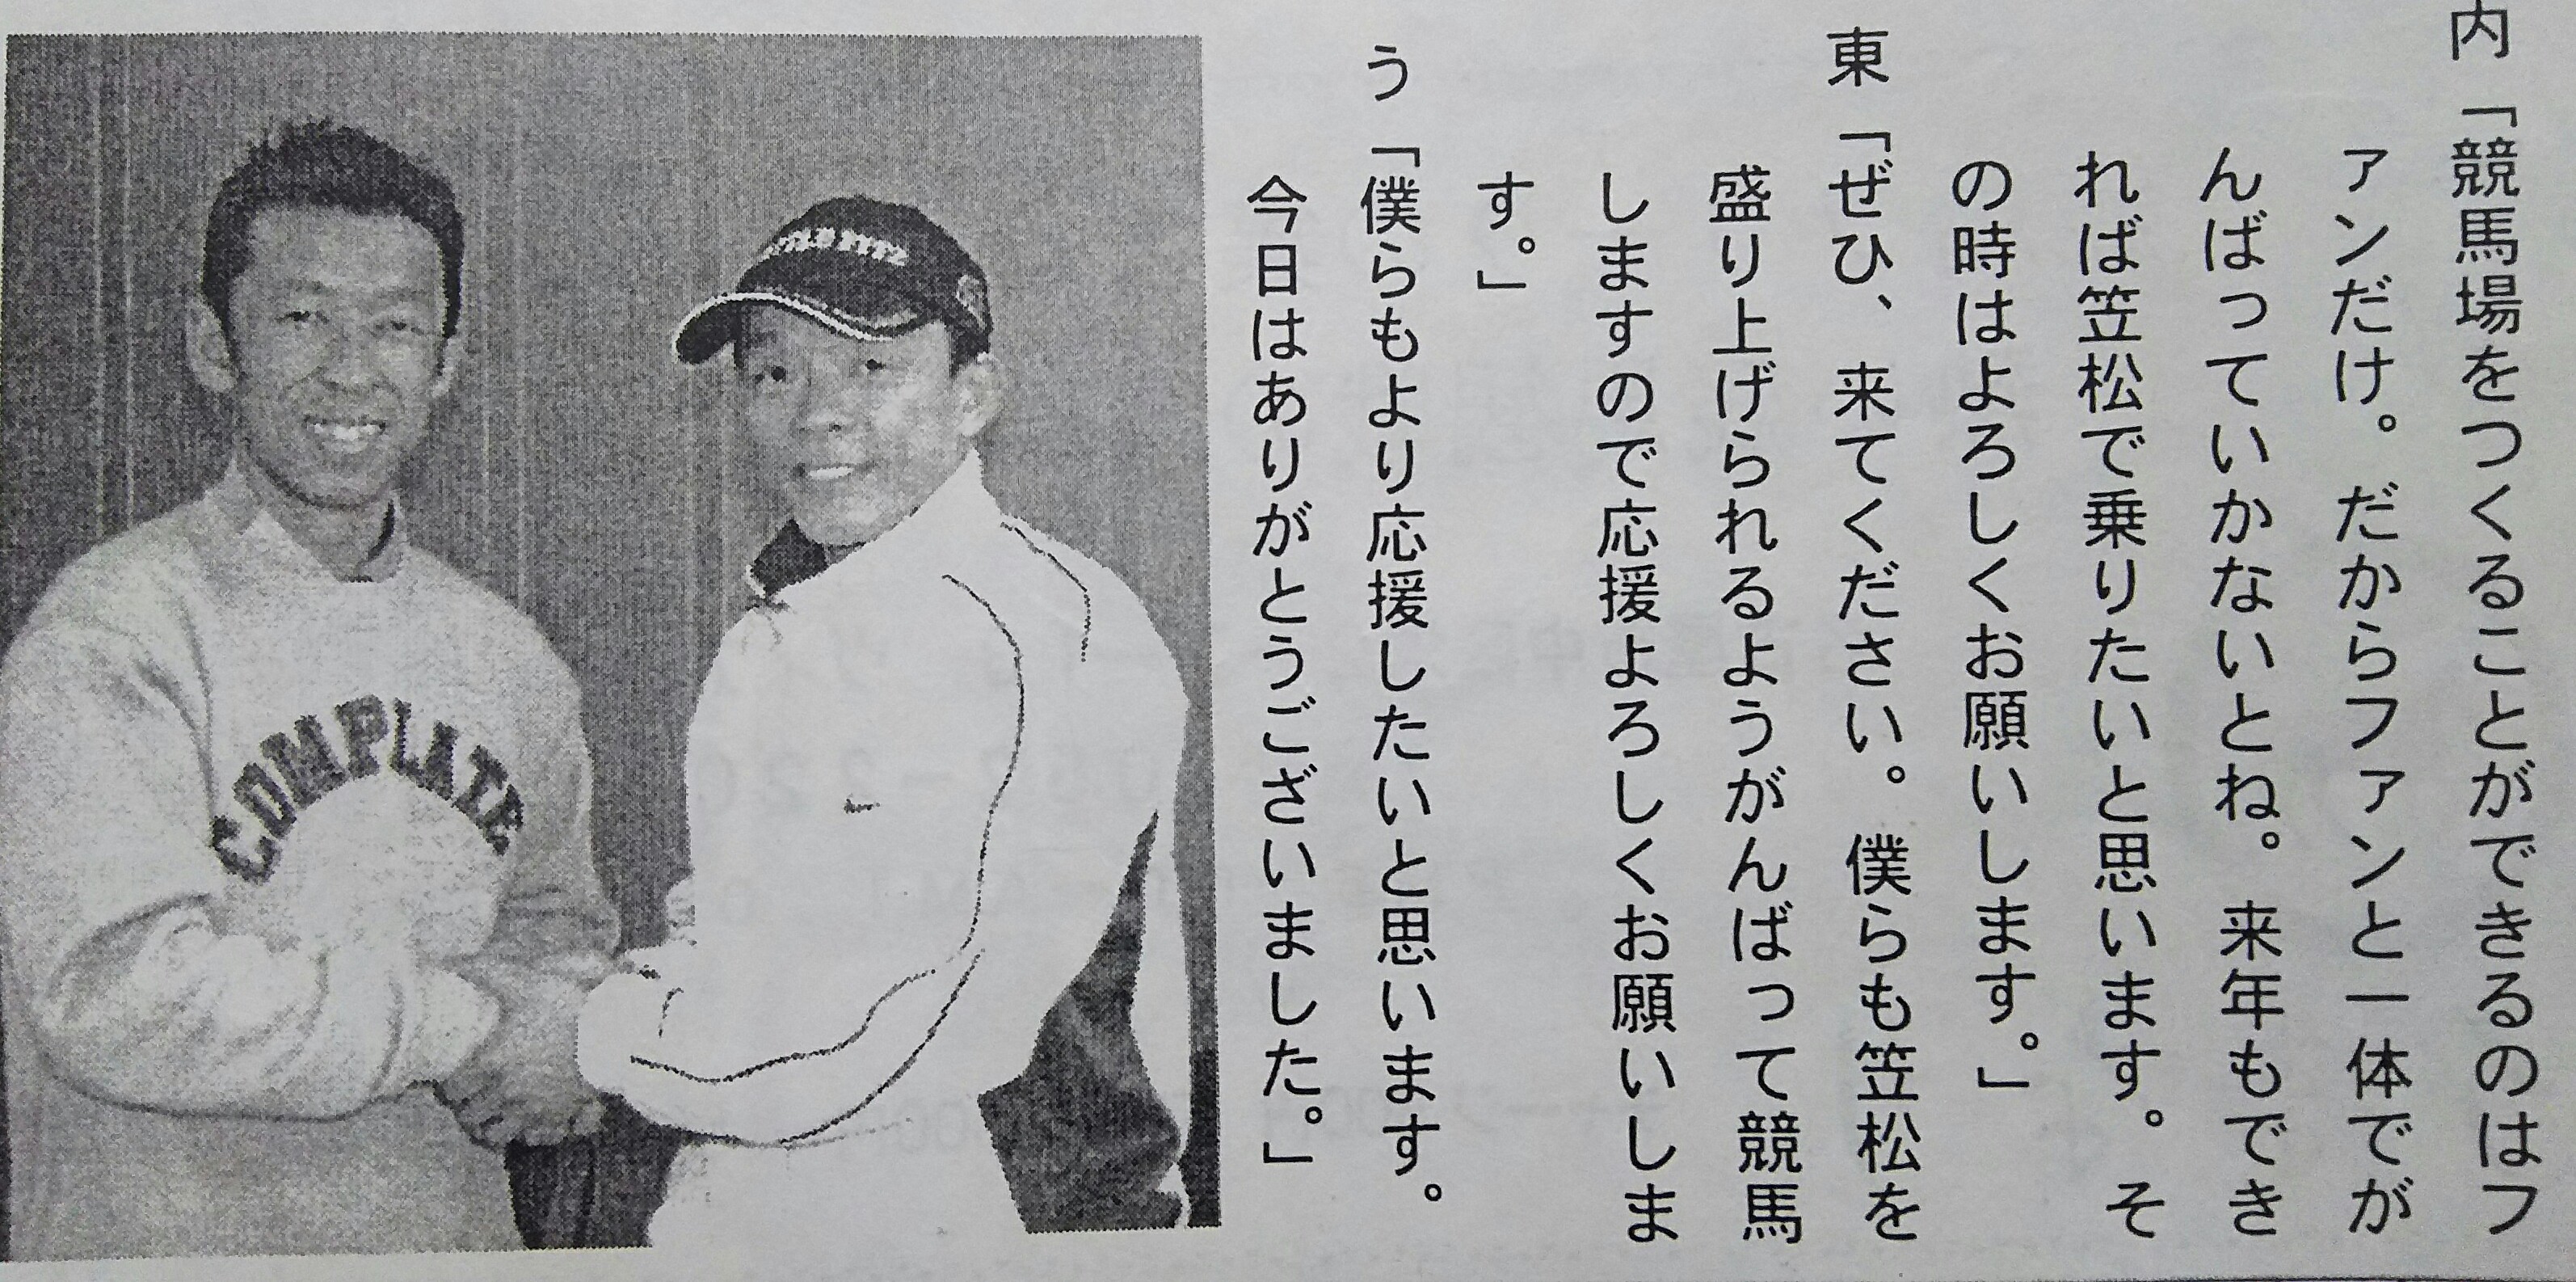 内「競馬場をつくることができるのはフ
ァンだけ。だからファンと一体でが
んばっていかないとね。来年もでき
れば笠松で乗りたいと思います。そ
の時はよろしくお願いします。」
東「ぜひ、来てください。僕らも笠松を
盛り上げられるようがんばって競馬
しますので応援よろしくお願いしま
す。」
う「僕らもより応援したいと思います。
今日はありがとうございました。」
COMPLATE